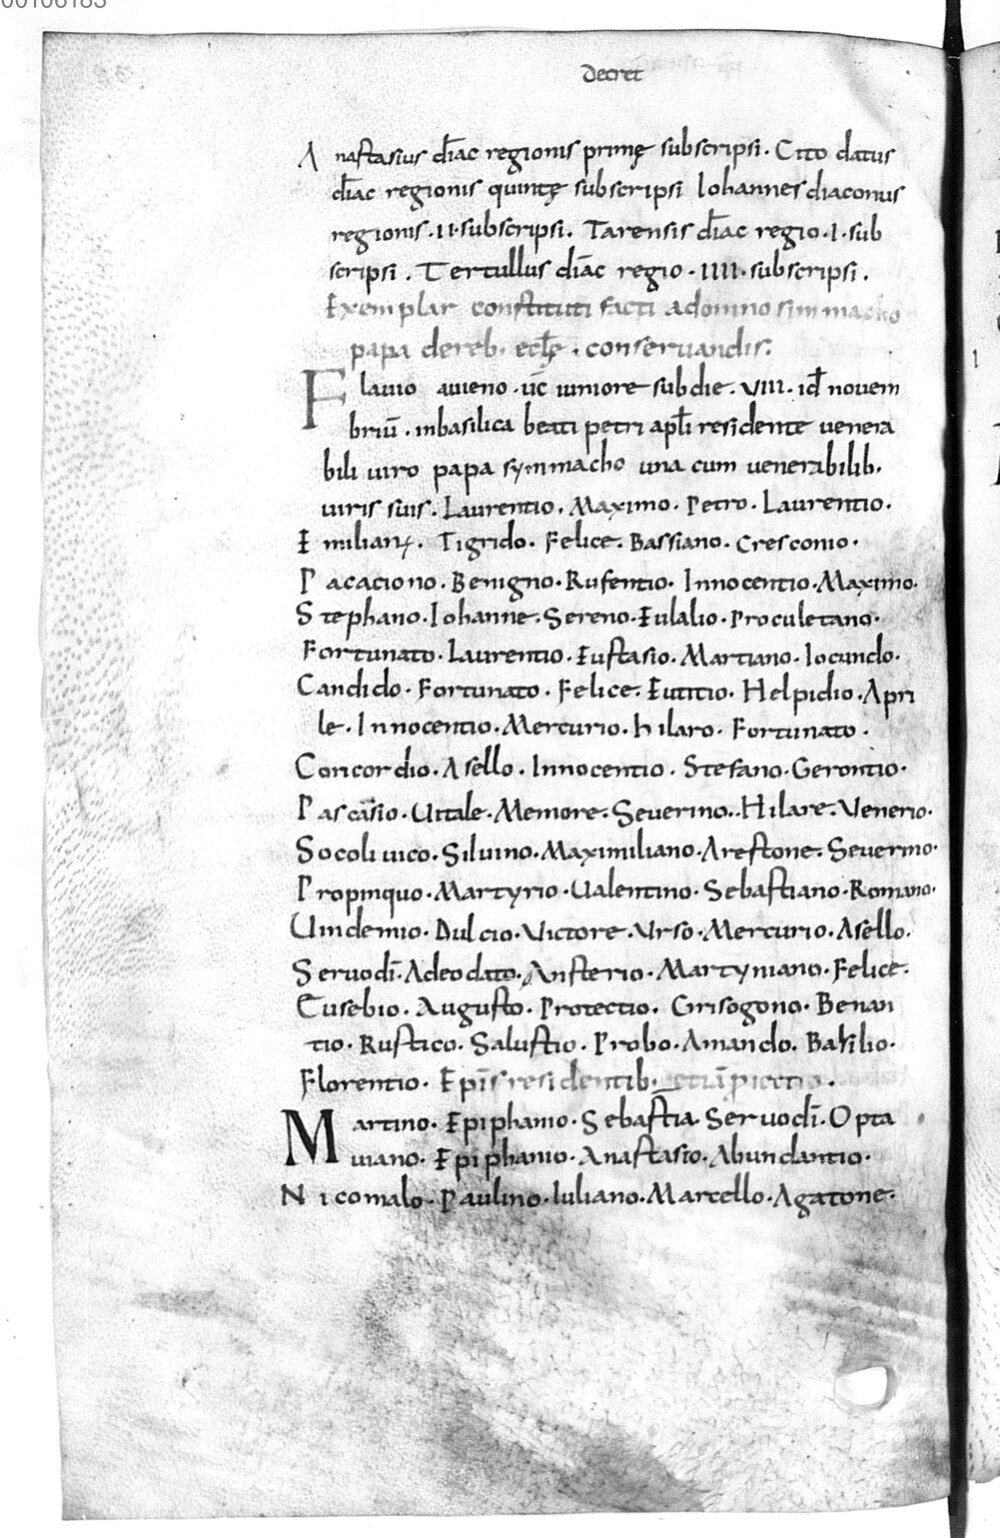 00106183
Decret
Anastasius diac̄ regionis primę subscripsi. Cito datus
diac̄ regionis quintę subscripsi Iohannes diaconus
regionis .II. subscripsi. Tarensis diac̄ regio .I. sub
scripsi. Tertullus diāc regio .IIII. subscripsi.
Exemplar constituti facti adomno simmacho
papa dereb. ecłę. conseruandis:
Flauio auieno .uc̄ iuniore subdie. VIII. id̄ nouem
briū. inbasilica beati petri apłi residente venera
bili uiro papa symmacho una cum uenerabilib.
uiris suis. Laurentio. Maximo. Petro. Laurentio.
Emilianꝫ. Tigrido. Felice. Bassiano. Cresconio.
Pacaciono. Benigno. Rufentio. Innocentio. Maximo.
Stephano. Iohanne. Sereno. Eulalio. Proculetano.
Fortunato. Laurentio. Eustasio. Martiano. Iocundo.
Candido. Fortunato. Felice. Eutitio. Helpidio. Apri
le. Innocentio. Mercurio. hilaro. Fortunato.
Concordio. Asello. Innocentio. Stefano. Gerontio.
Pascasio. Uitale. Memore. Severino. Hilare. Venerio.
Socoli uico. Siluino. Maximiliano. Arestone. Severino.
Propinquo. Martyrio. Ualentino. Sebastiano. Romano.
Uindemio. Dulcio. Victore. Urso. Mercurio. Asello.
Seruodī. Adeodato. Ansterio. Martyniano. Felice.
Eusebio. Augusto. Protectio. Grisogono. Benan
tio. Rustico. Salustio. Probo. Amando. Basilio.
Florentio. Epīs residentib.
Martino. Epiphanio. Sebastia. Seruodī. Opta
uiano. Epiphanio. Anastasio. Abundantio.
Nicomalo. Paulino. Iuliano. Marcello. Agatone.